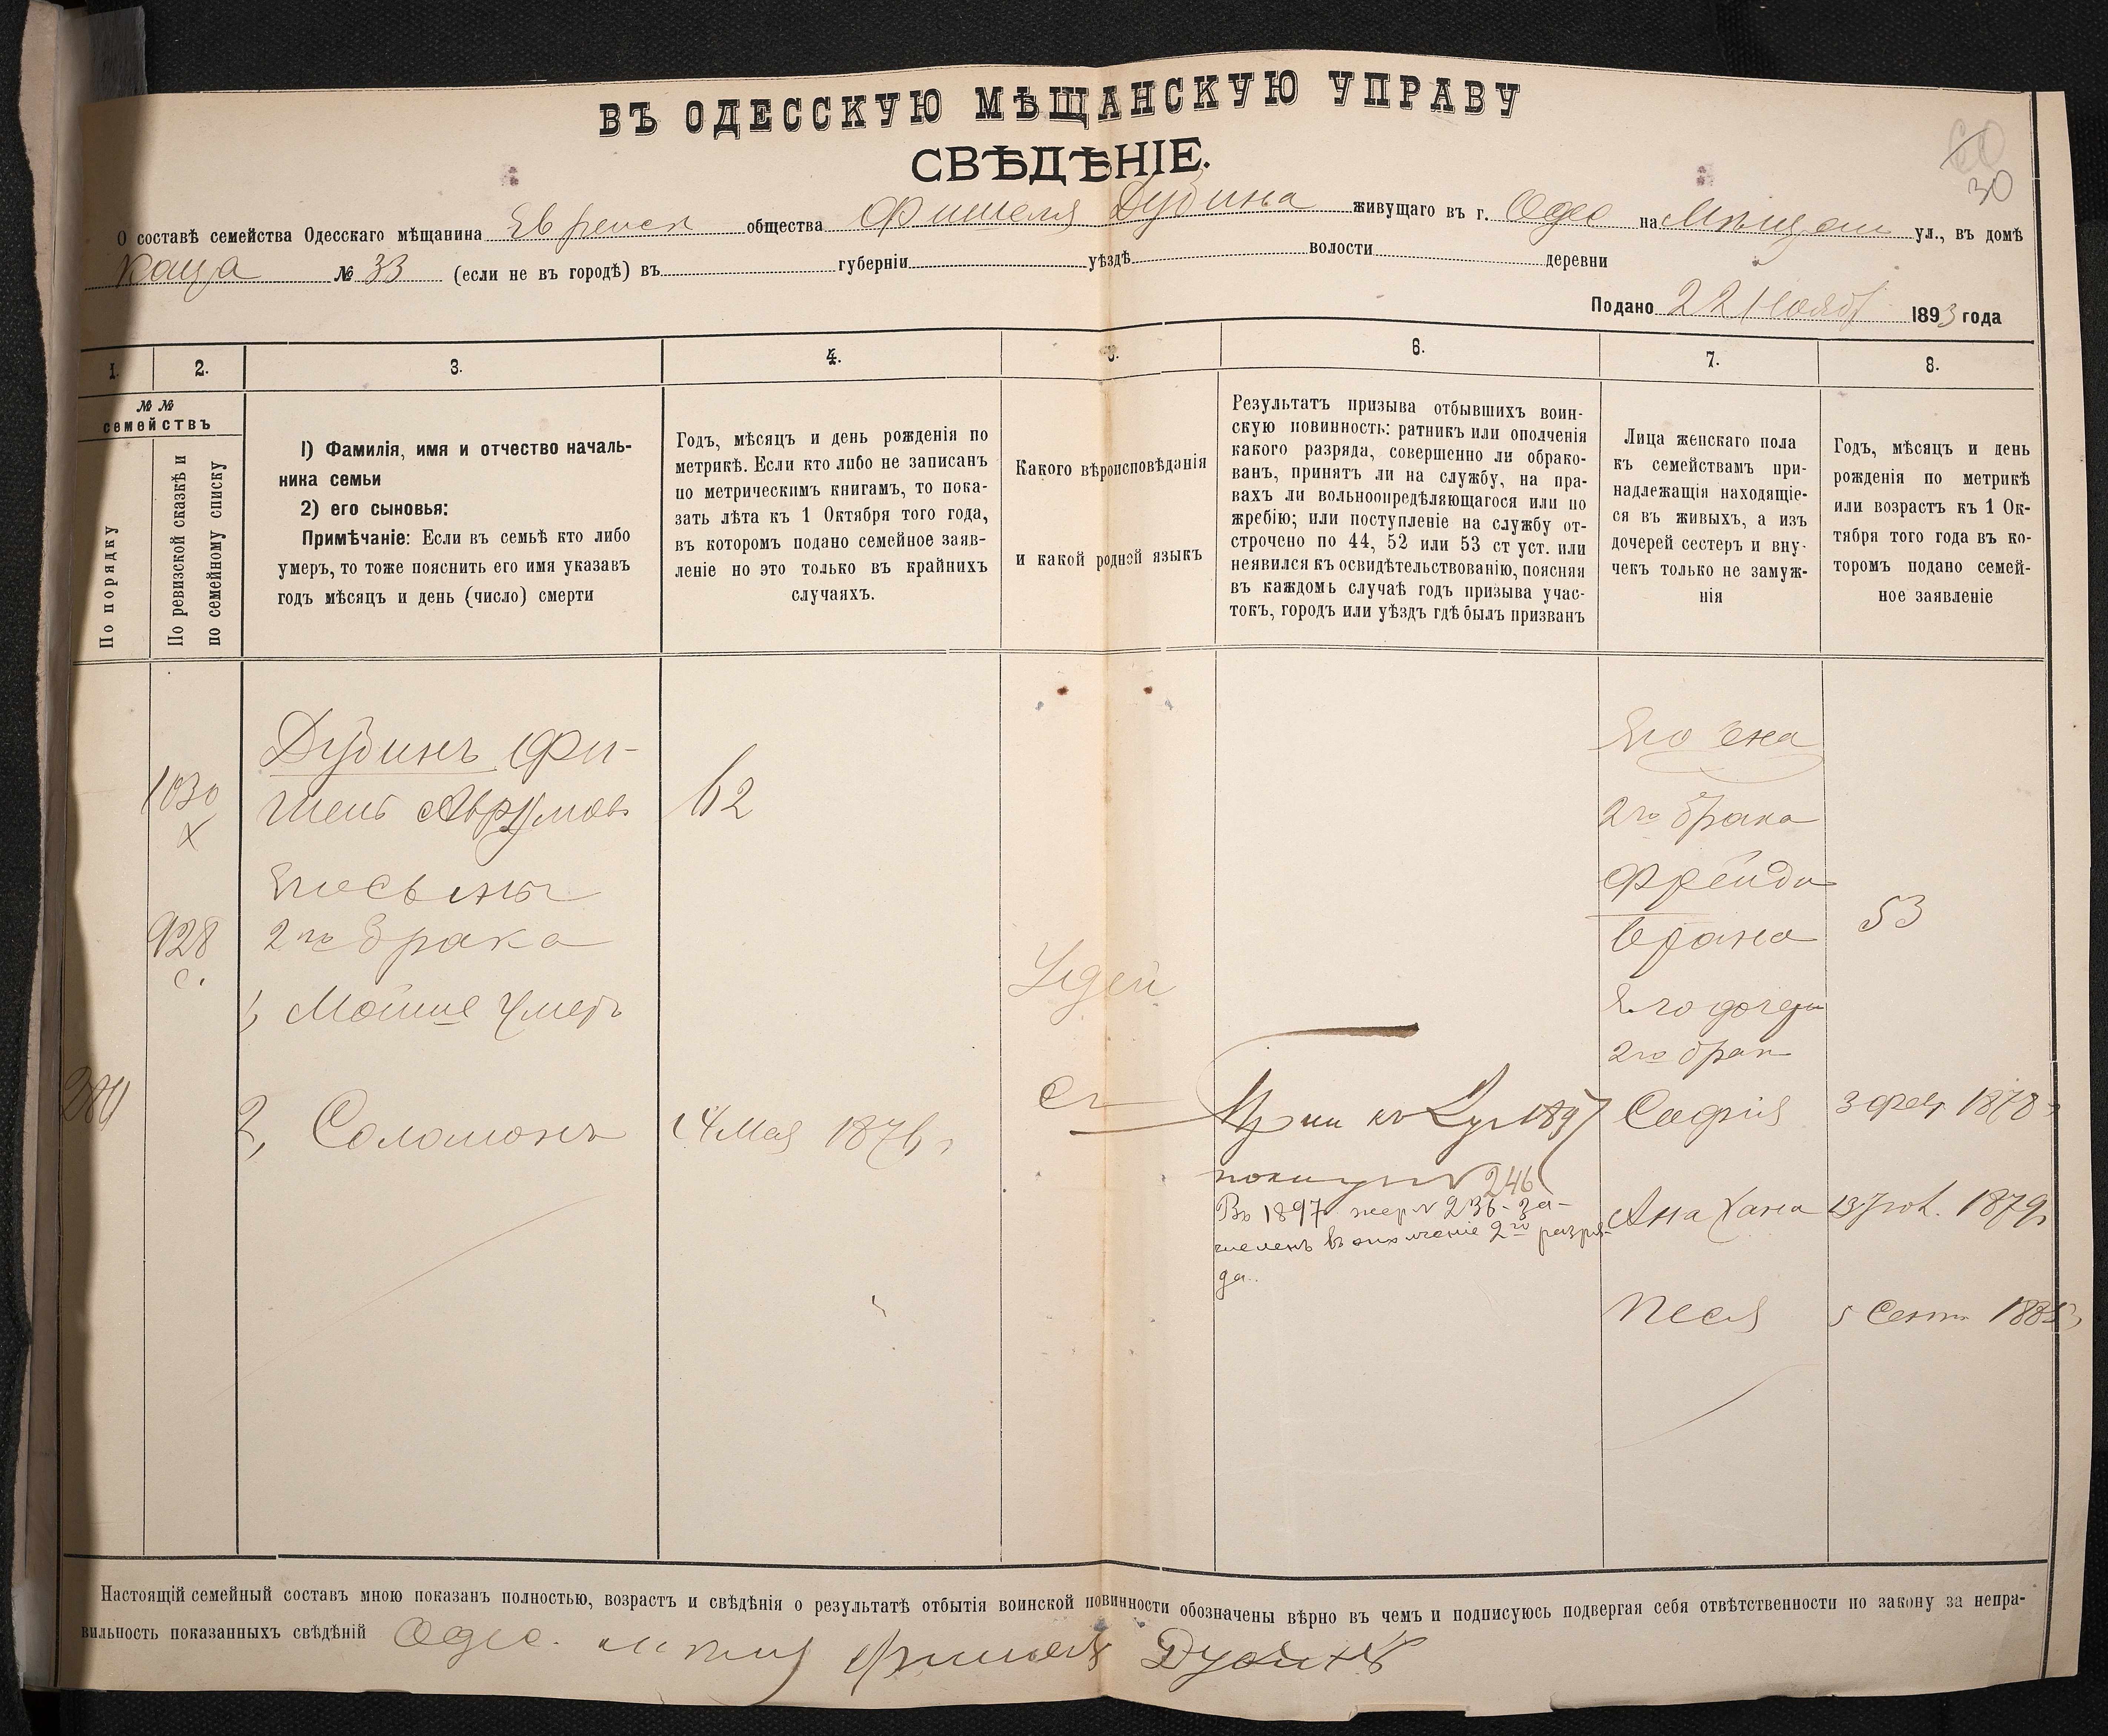 ВЪ ОДЕССКУЮ МѢЩАНСКУЮ УПРАВУ
СВѢДѢНІЕ.
30
О составѣ семейства Одесскаго мѣщанина Еврейск общества Фишеля Дубина живущаго въ г. Одес на Мѣщан ул., въ домѣ
Каца № 33 (если не въ городѣ) въ губерніи уѣздѣ волости деревни
Подано 22 Ноябр 1893 года
1. 2. 3. 4. 5. 6. 7. 8.
№ №
семействъ
По порядку
По ревизской сказкѣ и
по семейному списку
1) Фамилія, имя и отчество началь-
ника семьи
2) его сыновья:
Примѣчаніе: Если въ семьѣ кто либо
умеръ, то тоже пояснить его имя указавъ
годъ мѣсяцъ и день (число) смерти
Годъ, мѣсяцъ и день рожденія по
метрикѣ. Если кто либо не записанъ
по метрическимъ книгамъ, то пока-
зать лѣта къ 1 Октября того года,
въ которомъ подано семейное заяв-
леніе но это только въ крайнихъ
случаяхъ.
Какого вѣроисповѣданія
и какой родной языкъ
Результатъ призыва отбывшихъ воин-
скую повинность: ратникъ или ополченія
какого разряда, совершенно ли обрако-
ванъ, принятъ ли на службу, на пра-
вахъ ли вольноопредѣляющагося или по
жребію; или поступленіе на службу от-
строчено по 44, 52 или 53 ст уст. или
неявился къ освидѣтельствованію, поясняя
въ каждомъ случаѣ годъ призыва учас-
токъ, городъ или уѣздъ гдѣ былъ призванъ
Лица женскаго пола
къ семействамъ при-
надлежащія находящіе-
ся въ живыхъ, а изъ
дочерей сестеръ и вну-
чекъ только не замуж-
нія
Годъ, мѣсяцъ и день
рожденія по метрикѣ
или возрастъ къ 1 Ок-
тября того года въ ко-
торомъ подано семей-
ное заявленіе
1030
х
928
с.
280
Дубинъ Фи-
шель Аврумов
62
Его сыны
2го брака
1, Мойше Умеръ
2, Соломонъ
14 Мая 1876 г
Іудей
при къ 1897
246
Въ 1897 жер № 236 - за-
численъ въ ополченіе 2го разря-
да.
Его жена
2го брака
Фрейда
Брана
53
Его дочери
2го брак
Софія 3 фев 1878 г
Анна Хана 13 1879
Песя 5 Сент 188
Настоящій семейный составъ мною показанъ полностью, возрастъ и свѣдѣнія о результатѣ отбытія воинской повинности обозначены вѣрно въ чемъ и подписуюсь подвергая себя отвѣтственности по закону за непра-
вильность показанныхъ свѣдѣній Одес. Фишель Дубинъ